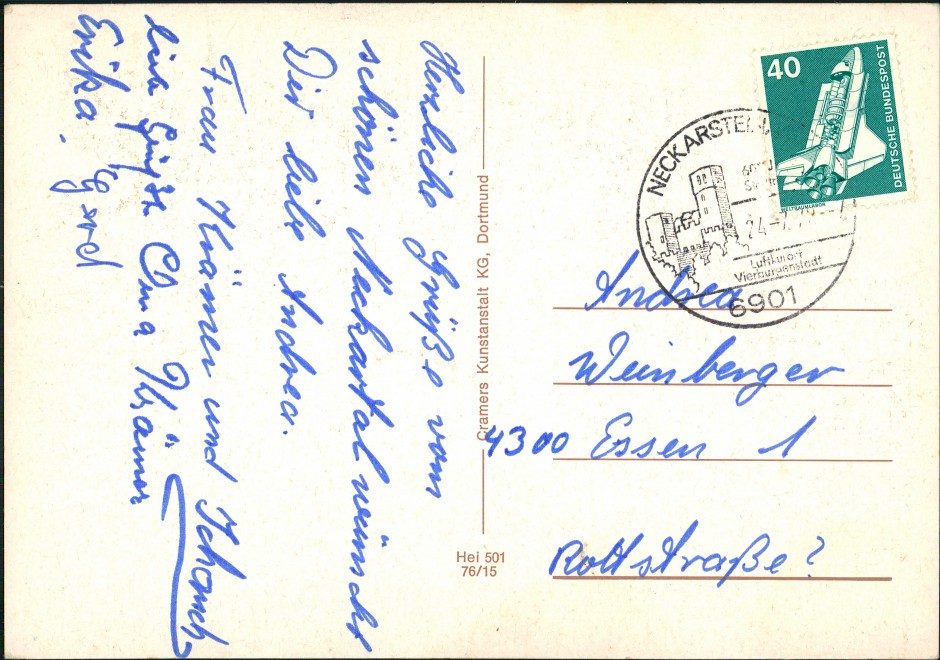 Herzliche Grüße vom
schönen Neckartal wünscht
Dir liebe Andrea.
Frau Krämer und
liebe Grüße Oma Krämer
Erika. Gerd
Cramers Kunstanstalt KG, Dortmund
Hei 501
76/15
40
DEUTSCHE BUNDESPOST
WELTRAUMLABOR
Luftkurort
Vierburgenstadt
6901
Andrea
Weinberger
4300 Essen 1
Rottstraße?